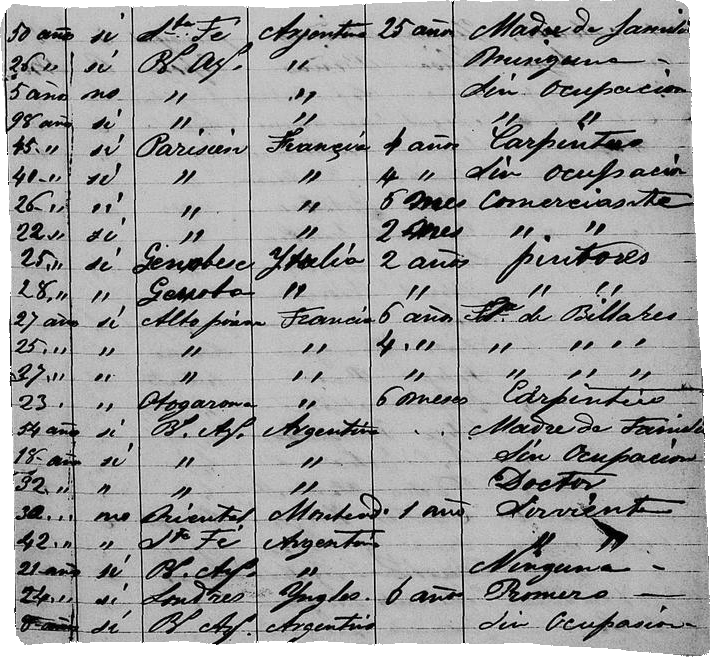 50 año sí Sta Fé Argentina 25 años Madre de famili
26 " sí Bs. Ays. " Ninguna -
5 año no " " Sin Ocupacion
98 año sí " " " "
45 " sí Parisien Francia 4 años Carpintero
40 " sí " " 4 " Sin ocupación
26 " sí " " 6 mes Comerciante
22 " sí " " 2 mes " "
25 " sí Genobese Ytalia 2 años pintores
28 " " Genoba " " " "
27 año sí Alto Francia 6 años de Billares
25 " " " " 4 " " " " "
27 " " " " " " " "
23 " " 6 meses Carpintero
54 año sí Bs. Ays. Argentina Madre de Famili
18 año sí " " Sin Ocupacion
32 " " " " Doctor
30 " no Oriental Montevd. 1 año Sirviente
42 " " Sta Fé Argentina " "
21 año sí Bs. Ays. " Ninguna -
24 " sí Londres Yngles. 6 año Romero -
8 año sí Bs. Ays. Argentina Sin Ocupasion -